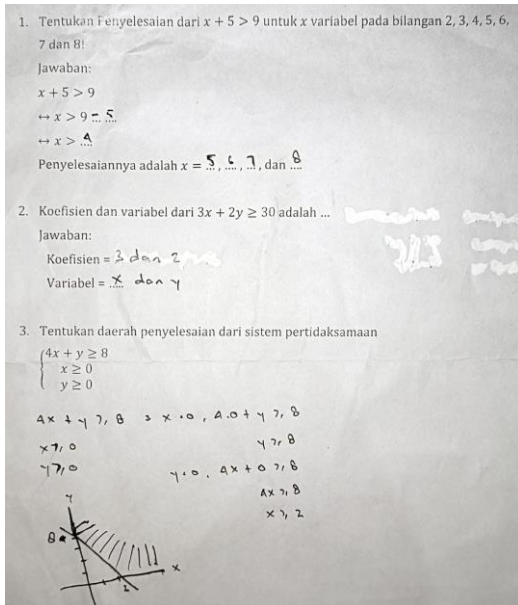 1. Tentukan Penyelesaian dari x + 5 > 9 untuk x variabel pada bilangan 2, 3, 4, 5, 6,
7 dan 8!
Jawaban:
x + 5 > 9
↔ x > 9 - 5
↔ x > 4
Penyelesaiannya adalah x = 5, 6, 7, dan 8
2. Koefisien dan variabel dari 3x + 2y ≥ 30 adalah ...
Jawaban:
Koefisien = 3 dan 2
Variabel = x dan y
3. Tentukan daerah penyelesaian dari sistem pertidaksamaan
4x + y ≥ 8
x ≥ 0
y ≥ 0
4x + y ≥ 8 → x = 0, 4.0 + y ≥ 8
x ≥ 0 y ≥ 8
y ≥ 0 y = 0, 4x + 0 ≥ 8
4x ≥ 8
x ≥ 2
y
8
x
2